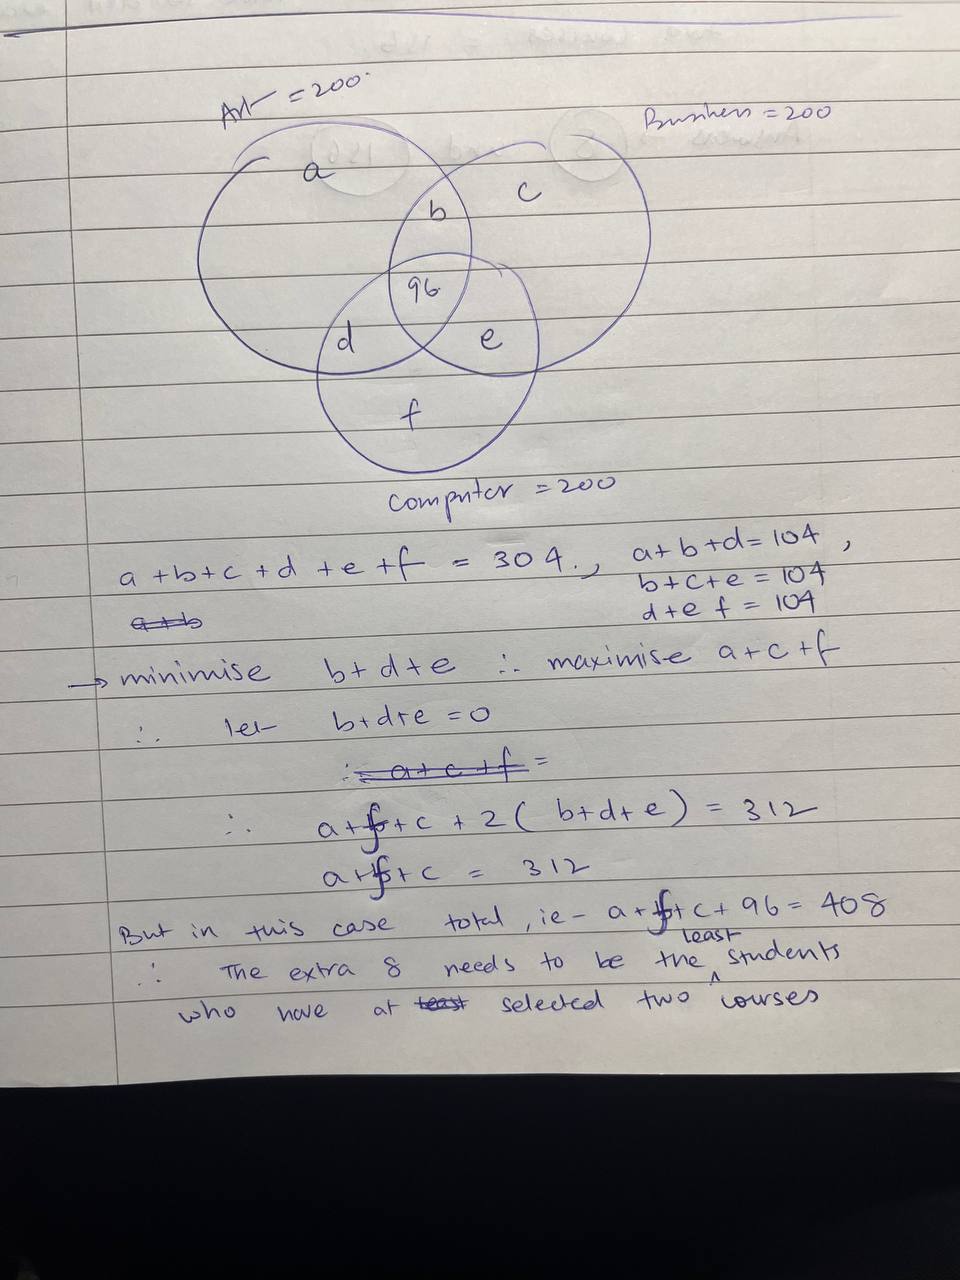 Art = 200.
Business = 200
a
c
b
96
d
e
f
Computer = 200
a + b + c + d + e + f = 304., a + b + d = 104 ,
b + c + e = 104
a + b
d + e f = 104
→ minimise b + d + e ∴ maximise a + c + f
∴ let b + d + e = 0
∴ a + c + f =
∴ a + f + c + 2 ( b + d + e ) = 312
a + f + c = 312
But in this case total , ie - a + f + c + 96 = 408
least
∴ The extra 8 needs to be the ^ students
who have at least selected two courses